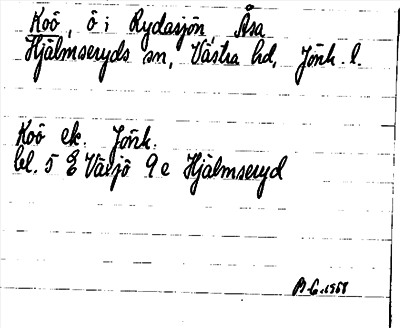 Koö, ö i Rydasjön, Åsa
Hjälmseryds sn, Västra hd, Jönk. l.
Koö ek. Jönk.
bl. 5 E Växjö 9 e Hjälmseryd